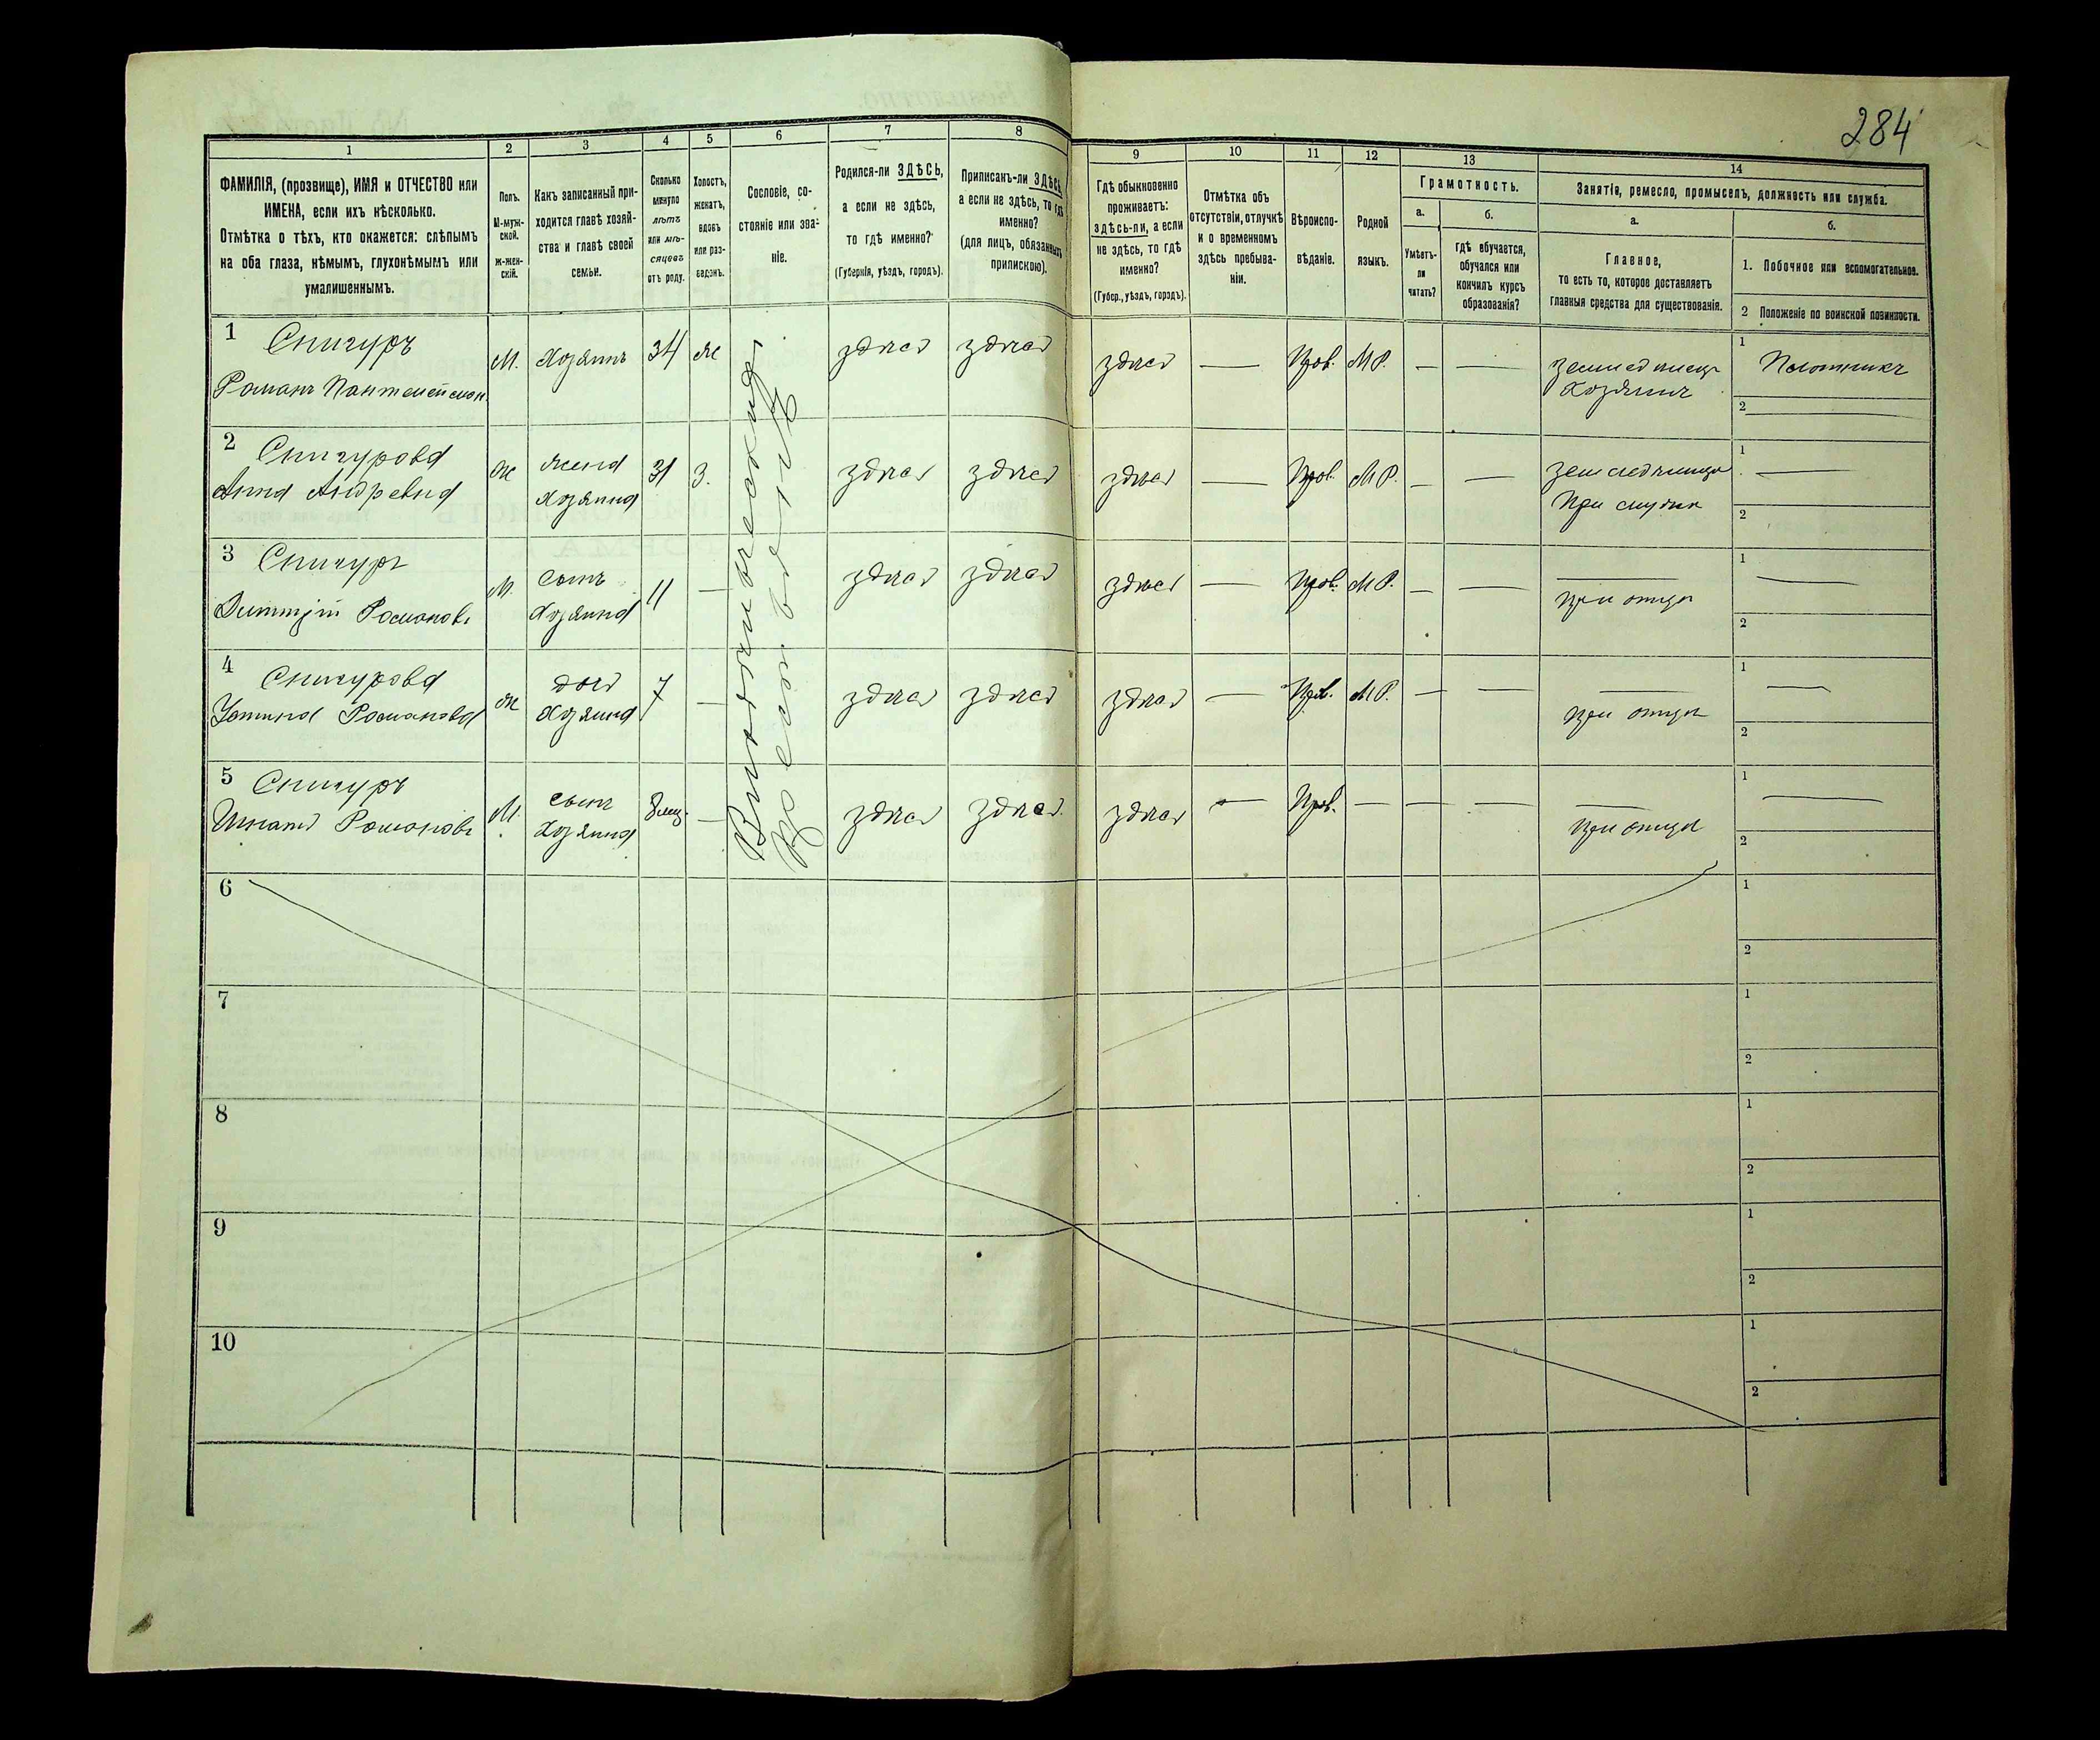 284
1 2 3 4 5 6 7 8 9 10 11 12 13 14
ФАМИЛІЯ, (прозвище), ИМЯ и ОТЧЕСТВО или
ИМЕНА, если ихъ нѣсколько.
Отмѣтка о тѣхъ, кто окажется: слѣпымъ
на оба глаза, нѣмымъ, глухонѣмымъ или
умалишеннымъ.
Полъ.
М-муж-
ской.
ж-жен-
скій.
Какъ записанный при-
ходится главѣ хозяй-
ства и главѣ своей
семьи.
Сколько
минуло
лѣтъ
или мѣ-
сяцевъ
отъ роду.
Холостъ,
женатъ,
вдовъ
или раз-
веденъ.
Сословіе, со-
стояніе или зва-
ніе.
Родился-ли ЗДѢСЬ,
а если не здѣсь,
то гдѣ именно?
(Губернія, уѣздъ, городъ).
Приписанъ-ли ЗДѢСЬ,
а если не здѣсь, то гдѣ
именно?
(для лицъ, обязанныхъ
припискою).
Гдѣ обыкновенно
проживаетъ:
здѣсь-ли, а если
не здѣсь, то гдѣ
именно?
(Губер., уѣздъ, городъ).
Отмѣтка объ
отсутствіи, отлучкѣ
и о временномъ
здѣсь пребыва-
ніи.
Вѣроиспо-
вѣданіе.
Родной
языкъ.
Грамотность.
а.
Умѣетъ-
ли
читать?
б.
гдѣ обучается,
обучался или
кончилъ курсъ
образованія?
Занятія, ремесло, промыселъ, должность или служба.
а.
Главное,
то есть то, которое доставляетъ
главныя средства для существованія.
б.
1. Побочное или вспомогательное.
2 Положеніе по воинской повинности.
1 Снигуръ
Романъ Пантелеймон.
М. Хозяинъ 34 Ж здѣсь здѣсь здѣсь — Прав. М.Р. — — земледѣлецъ
Хозяинъ
1 Плотникъ
2
2 Снигурова
Анна Андреевна
Ж жена
Хозяина
31 З. здѣсь здѣсь здѣсь — Прав. М.Р. — —
При
1 —
2
3 Снигуръ
Димитрій Романовъ
М. сынъ
Хозяина
11 — здѣсь здѣсь здѣсь — Прав. М.Р. — — —
при отцѣ
1 —
2
4 Снигурова
Устина Романова
Ж дочь
Хозяина
7 — здѣсь здѣсь здѣсь — Прав. М.Р. — — —
при отцѣ
1 —
2
5 Снигуръ
Игнатъ Романовъ
М. сынъ
Хозяина
мѣс. — здѣсь здѣсь здѣсь — Прав. — — — —
при отцѣ
1 —
2
6
1
2
7
1
2
8
1
2
9
1
2
10
1
2